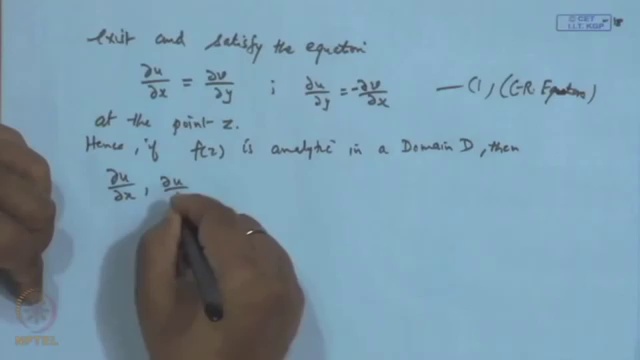 © CET
I.I.T. KGP
exist and satisfy the equation
∂u/∂x = ∂v/∂y ; ∂u/∂y = -∂v/∂x — (1) (C-R. Equations)
at the point z.
Hence, if f(z) is analytic in a Domain D, then
∂u/∂x, ∂u/
NPTEL